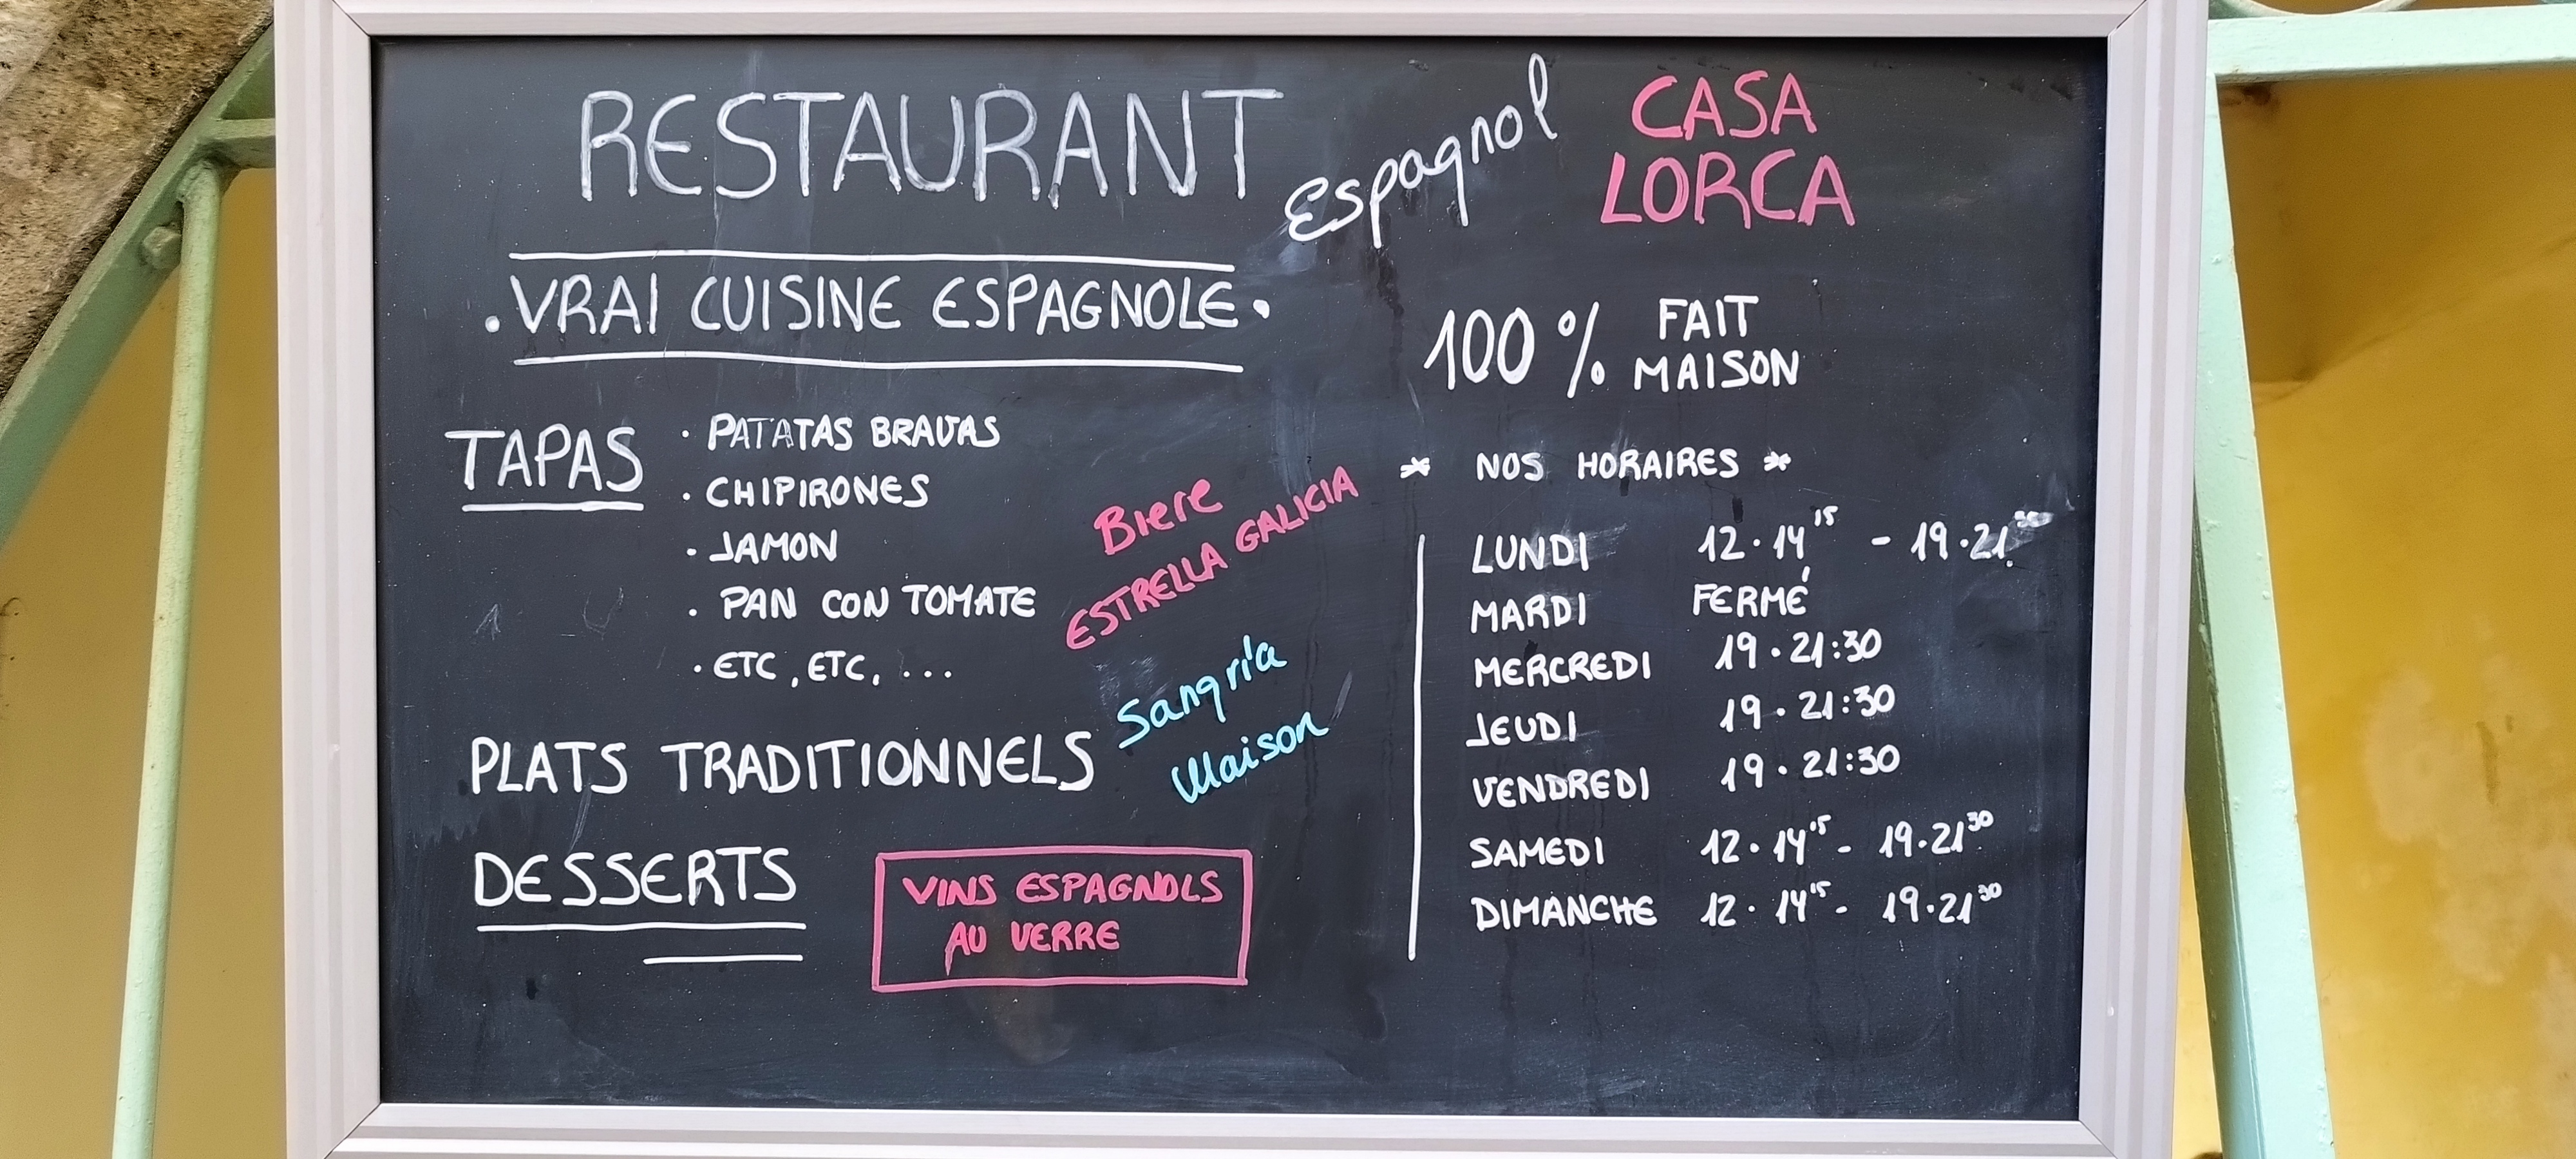 RESTAURANT Espagnol
CASA
LORCA
. VRAI CUISINE ESPAGNOLE .
100% FAIT
MAISON
TAPAS
· PATATAS BRAVAS
· CHIPIRONES
· JAMON
· PAN CON TOMATE
· ETC, ETC, ...
Biere
ESTRELLA GALICIA
Sangria
Maison
PLATS TRADITIONNELS
DESSERTS
VINS ESPAGNOLS
AU VERRE
* NOS HORAIRES *
LUNDI 12·14¹⁵ - 19·21³⁰
MARDI FERMÉ
MERCREDI 19·21:30
JEUDI 19·21:30
VENDREDI 19·21:30
SAMEDI 12·14¹⁵ - 19·21³⁰
DIMANCHE 12·14¹⁵ - 19·21³⁰